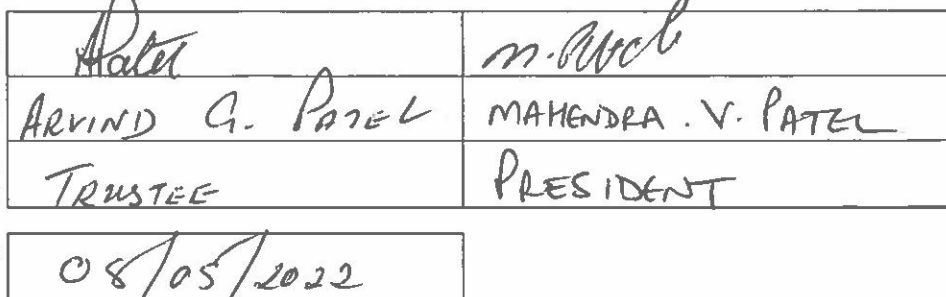 APatel m.Patel
ARVIND G. PATEL MAHENDRA . V. PATEL
TRUSTEE PRESIDENT
08/05/2022